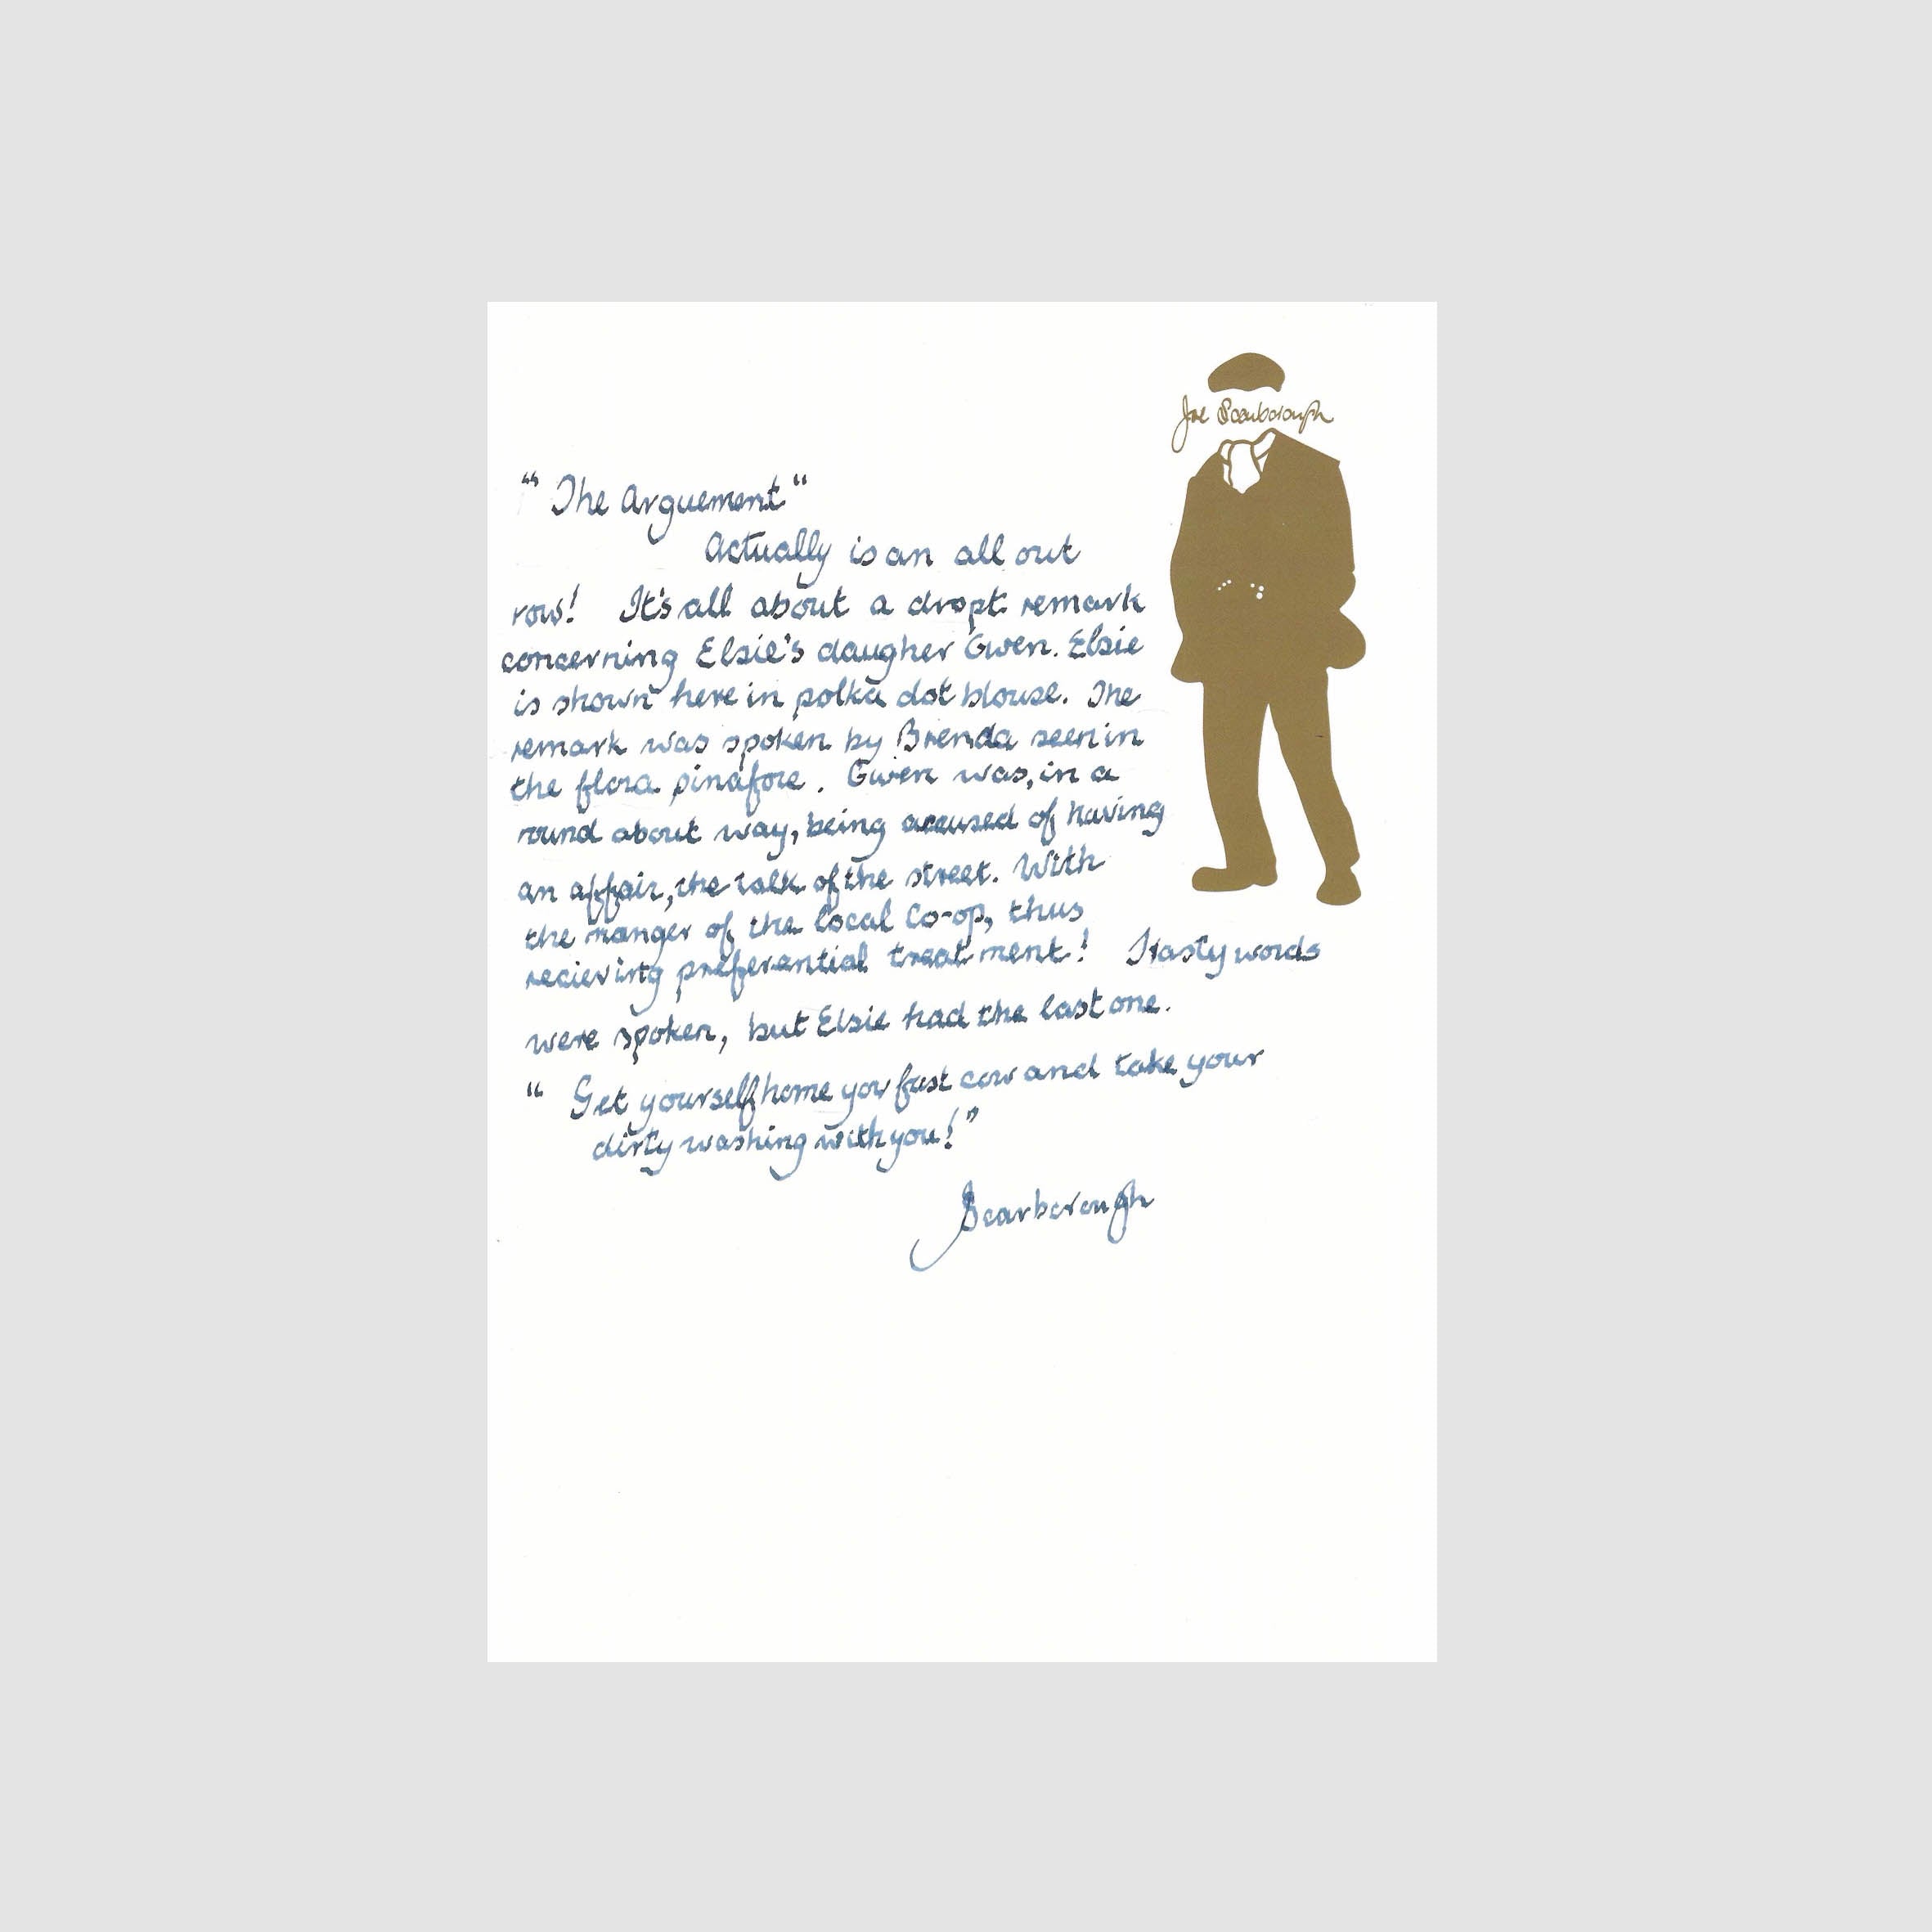 Joe Scarborough
"The Arguement"
Actually is an all out
row! It's all about a dropt remark
concerning Elsie's daugher Gwen. Elsie
is shown here in polka dot blouse. The
remark was spoken by Brenda seen in
the flora pinafore. Gwen was, in a
round about way, being accused of having
an affair, the talk of the street. With
the manger of the local Co-op, thus
recieving preferential treatment! Nasty words
were spoken, but Elsie had the last one.
" Get yourself home you fast cow and take your
dirty washing with you!"
Scarborough